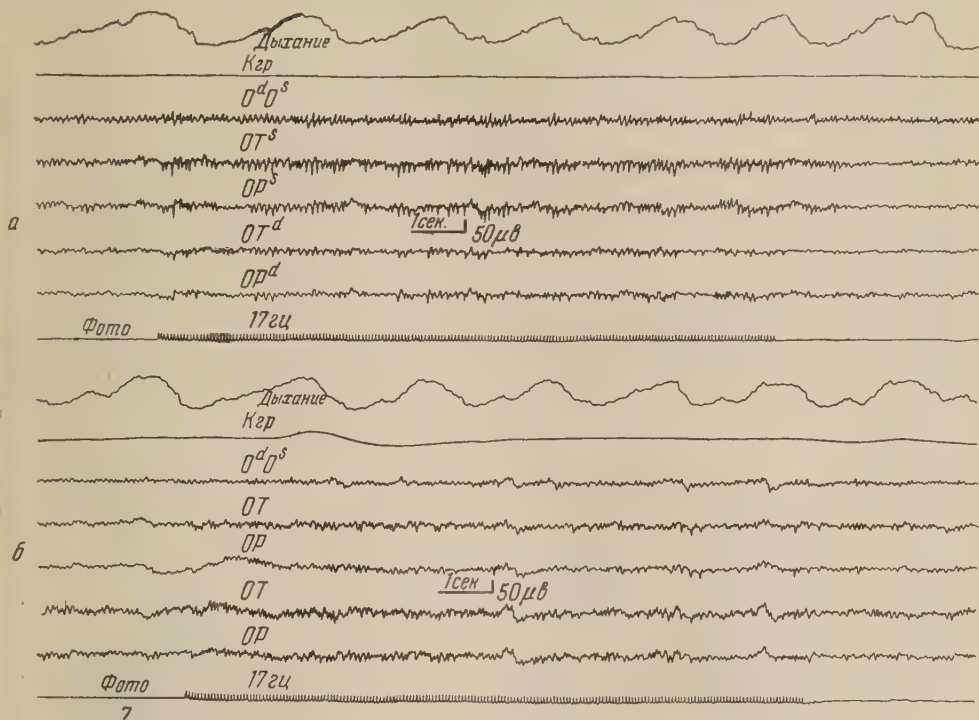 Дыхание
Кгр
OᵈOˢ
OTˢ
OPˢ
а
1сек. 50μв
OTᵈ
OPᵈ
Фото 17гц
Дыхание
Кгр
OᵈOˢ
OT
OP
б
1сек 50μв
OT
OP
Фото 17гц
7